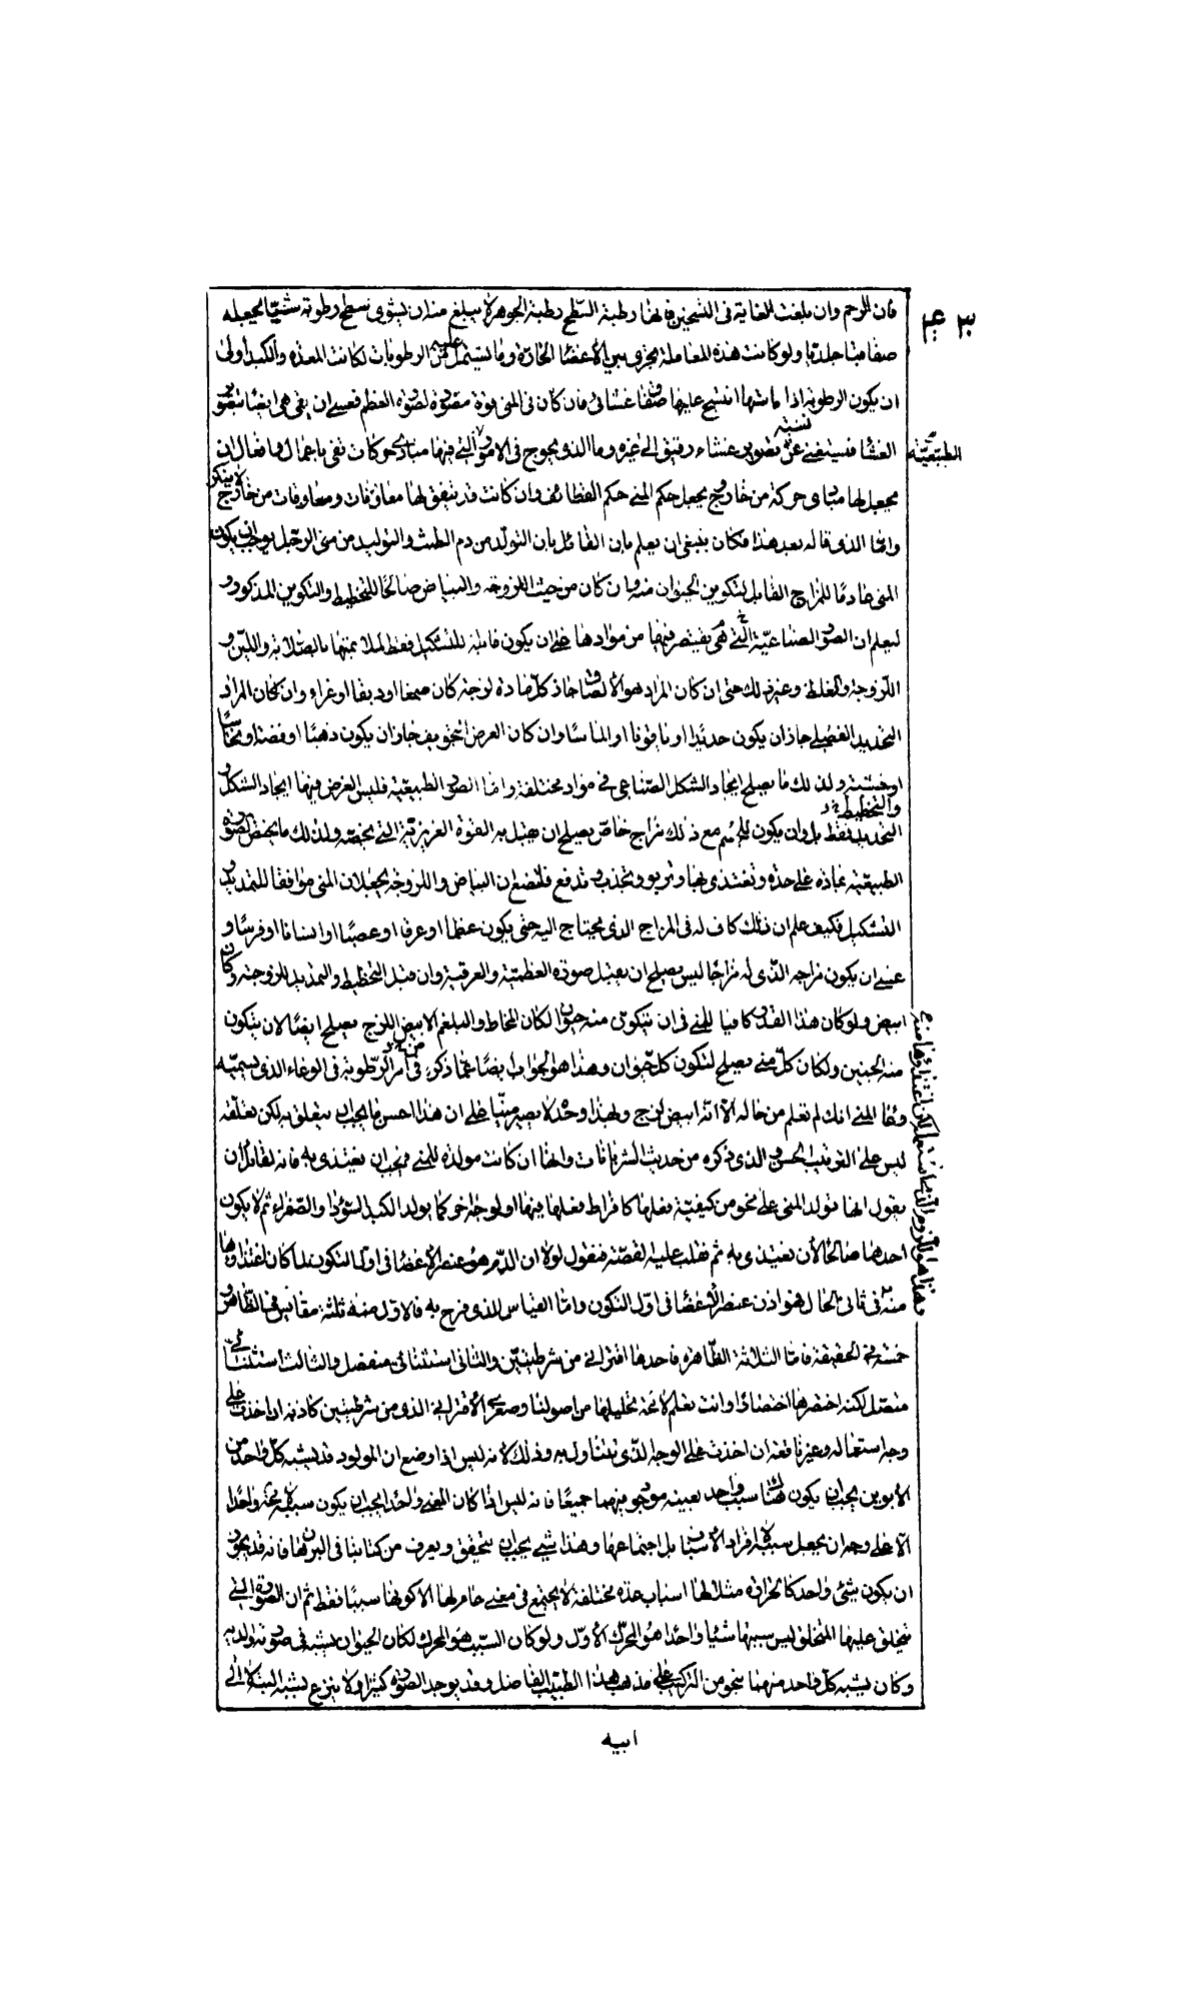 ٤٣٠
فان الرحم وان بلغت الغاية فى التسخين فانها رطبة السطح رطبة الجوهر لا يبلغ من ان يشوى سطح رطوبة شيئا يجعله
صفاقيا جلديا ولو كانت هذه المعاملة تجرى بين الأعضا الحارة وما يشتمل عليه من الرطوبات لكانت المعدة والكبد اولى
ان يكون الرطوبة اذا ماسّتها انتسج عليها صفاق غشائى فان كان فى المنى قوة مصورة لصورة العظم فعسى ان يفى هى ايضا بتصوير
الغشا فيستغنى عن نسبة تصوير غشاء رقيق الى غيره وما الذى يحوج فى الامور الطبيعية التى فيها مبادى حركات تفى باعمال لها فعال ان
يجعل لها مبادى حركة من خارج يجعل حكم المنى حكم القطائف وان كانت قد يتفق لها معاونات ومعاوقات من خارج لا ينكر
واما الذى قاله بعد هذا فكان ينبغى ان يعلم بان القائل بان التولد من دم الطمث والتوليد من منى الرجل يوجب ان يكون
المنى عادما للمزاج القابل لتكوين الحيوان منه وان كان من حيث اللزوجة والبياض صالحا للتخطيط والتكوين المذكور و
ليعلم ان الصور الصناعية التى هى يقتصر فيها من موادها على ان يكون قابلة للتشكيل فقط لملائمتها بالصلابة واللين و
اللزوجة والغلظ وغير ذلك حتى ان كان المراد هو الالصاق جاز كل مادة لزجة كان صمغا او دبقا او غراء وان كان المراد
التحديد الفصيلى جاز ان يكون حديدا او ياقوتا او الماسا وان كان الغرض التجويف جاز ان يكون ذهبا او فضة او نحاسا
او خشبة ولذلك ما يصلح ايجاد الشكل الصناعى فى مواد مختلفة واما الصور الطبيعية فليس الغرض فيها ايجاد الشكل و
التحديد والتخطيط فقط بل وان يكون للجسم مع ذلك مزاج خاص يصلح ان يقبل به القوة الغريزية التى تخصه ولذلك ما يختص الصورة
الطبيعية بمادة على حدة وتغتذى بها وتربو وتجذب وتدفع فلنضع ان البياض واللزوجة يجعلان المنى موافقا للتمديد و
التشكيل فكيف علم ان ذلك كاف له فى المزاج الذى يحتاج اليه حتى يكون عظما او عرقا او عصبا او انسانا او فرسا و
عسى ان يكون مزاجه الذى له مزاجا ليس يصلح ان يقبل صورة العظمية والعرقية وان قبل التخطيط والتمديد للزوجته وكان
ابيض ولو كان هذا القدر كافيا للمنى فى ان يتكون منه حيوان لكان المخاط والبلغم الابيض اللزج يصلح ايضا لان يتكون
منه الجنين ولكان كل منى يصلح لتكون كل حيوان وهذا هو الجواب ايضا عما ذكر من فى امر الرطوبة فى الوعاء الذى يسميه
وعاء المنى انك لم تعلم من حاله الا انه ابيض لزج ولهذا وحده لا يصير منيا على ان هذا احسن ما يجب ان يتعلق به لكن تعلقه
ليس على الترتيب الحسن والذى ذكره من حديث الشريانات وانها ان كانت مولدة للمنى فيجب ان يغتذى به فانه لقائل ان
يقول انها تولد المنى على نحو من كيفية فعلها كافراط فعلها فيها او لوجه آخر كما يولد الكبد السودا والصفراء ثم لا يكون
احدهما صالحا لان يغتذى به ثم نقلب عليه القصة فنقول لولا ان الدم هو عنصر الاعضا فى اول التكون لما كان اغتذاؤها
منه فى ثانى الحال فهو اذن عنصر الاعضا فى اول التكون واما القياس الذى فرح به فالاول منه ثلثة مقائيس فى الظاهر و
خمسة فى الحقيقة فاما الثلاثة الظاهرة فاحدها اقترانى من شرطيتين والثانى استثنائى منفصل والثالث استثنائى
متصل لكنه اختصرها اختصارا وانت تعلم لائحة تحليلها من اصولنا وصغرى الاقترانى الذى من شرطيتين كاذبة ان اخذت على
وجه استعماله وغير نافعة ان اخذت على الوجه الذى يتناول به وذلك لانه ليس اذا وضع ان المولود قد يشبه كل واحد من
الأبوين يجب ان يكون هناك سبب واحد بعينه موجود فيهما جميعا فانه ليس اذا كان المعنى واحدا يجب ان يكون سببه شىء واحدا
الا على وجه ان يجعل سببه لا افراد الأسباب بل اجتماعها وهذا شىء يجب ان يتحقق ويعرف من كتابنا فى البرهان فانه قد يجوز
ان يكون شىء واحد كالحرارة مثلا لها اسباب عدة مختلفة لا يجتمع فى معنى عام لها الا كونها سببا فقط ثم ان الصورة التى
يتخلق عليها المتخلق ليس سببها شيئا واحدا هو المحرك الأول ولو كان السبب هو المحرك لكان الحيوان يشبه فى صورته والديه
وكان يشبه كل واحد منهما بنحو من التركيب على مذهب هذا الطبيب الفاضل وقد يوجد الصورة كثيرا ولا ينزع يشبه البتة الى
ابيه